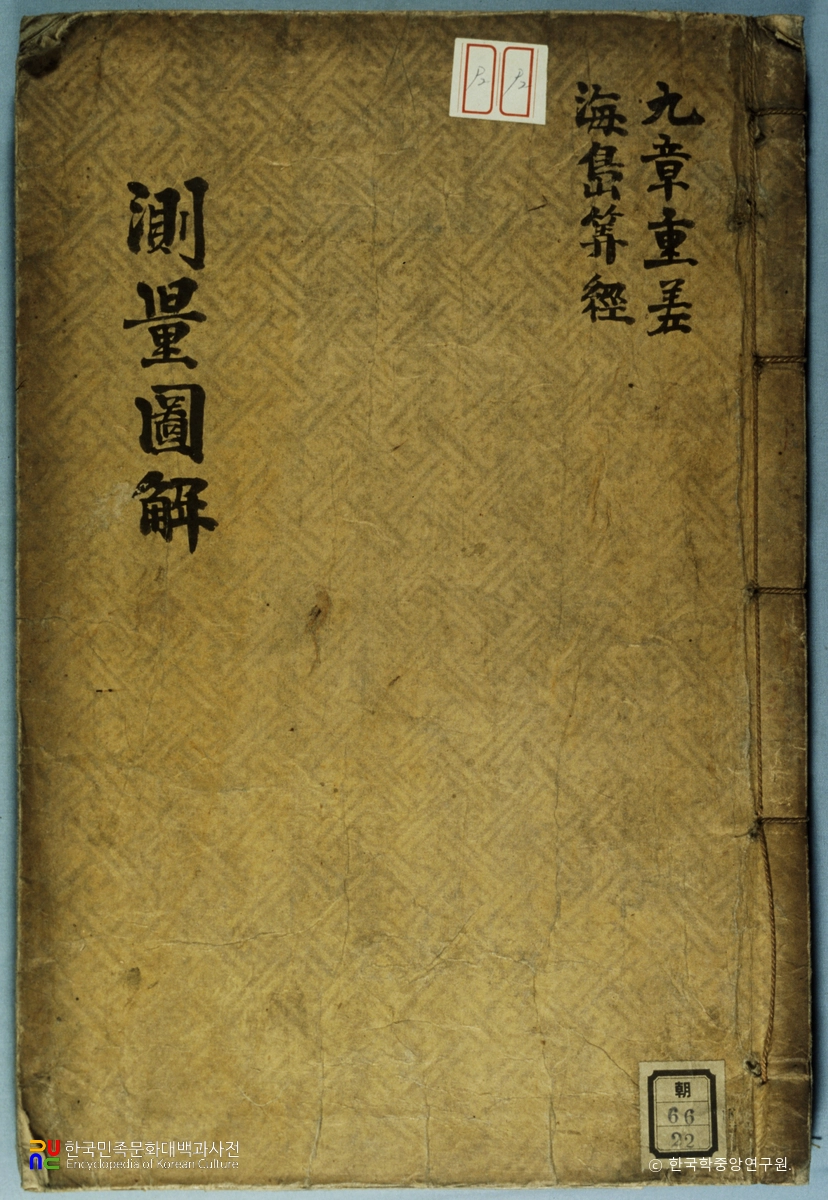 九章重差
海島筭經
測量圖解
朝
66
22
한국민족문화대백과사전
Encyclopedia of Korean Culture
© 한국학중앙연구원